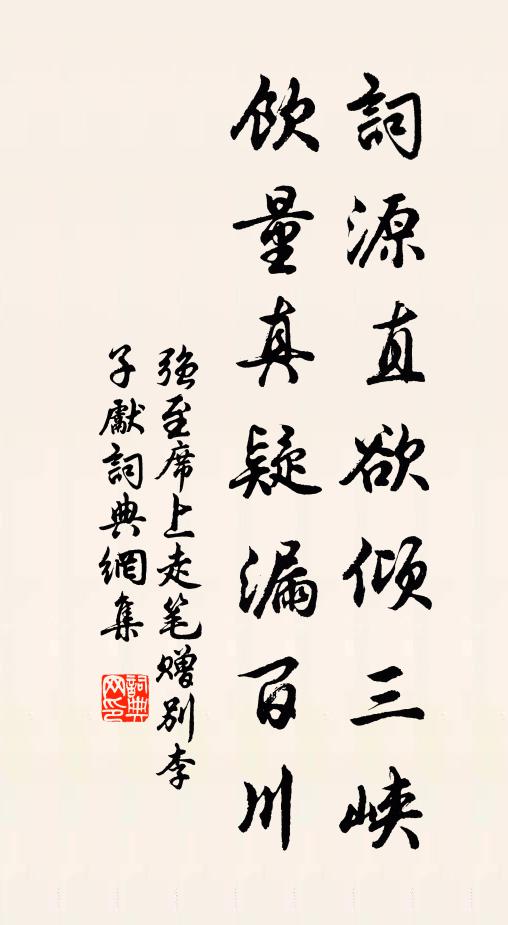 詞源直欲傾三峽
飲量真疑漏百川
强至席上走笔赠别李
子獻詞典網集
詞典
网印